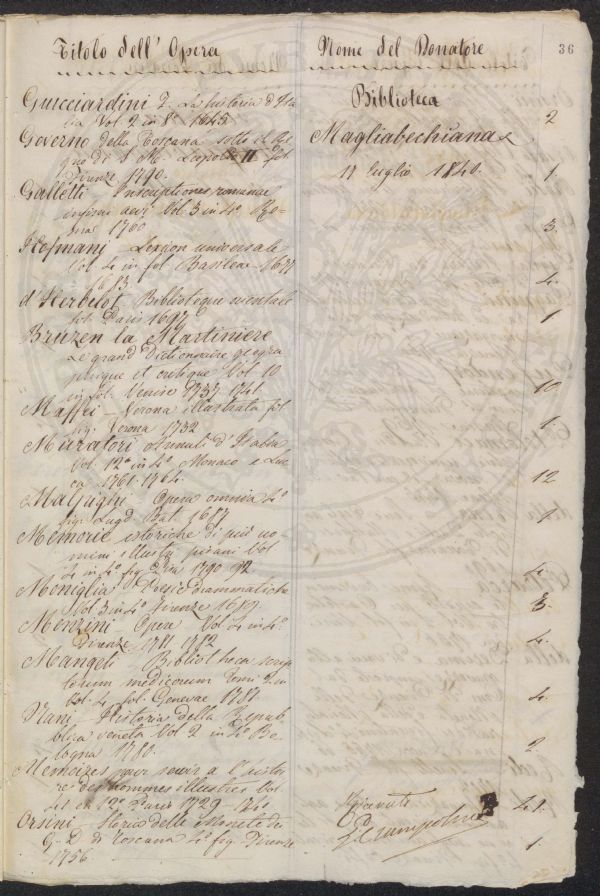 Titolo dell' Opera Nome del Donatore 36
Guicciardini La historia d'Ita
lia Vol. 2 in 8° 1645 2
Governo della Toscana sotto il Re
gno di S. M. Leopoldo II° fol
Firenze 1790. 1
Biblioteca
Magliabechiana
12 luglio 1840.
Galletti Inscriptiones romanae
infimi aevi Vol. 3 in 4° Ro-
ma 1760 3
Hofmani Lexicon universale
Vol. 4 in fol. Basileae 1677
1683 4
d'Herbelot Biblioteque orientale
fol. Paris 1697 1
Bruzen la Martiniere
Le grand Dictionnaire geogra
phique et critique Vol 10
in fol. Venise 1737 1741. 10
Maffei Verona illustrata fol
fig. Verona 1732 1.
Muratori Annali d'Italia
Vol. 12 in 4° Monaco e Luc
ca 1761. 1764. 12
Malpighi Opera omnia 4°
fig. Lugd. Bat. 1687 1
Memorie istoriche di più uo
mini illustri pisani Vol
4 in 4° fig. Pisa 1790 92 4.
Moniglia Poesie drammatiche
Vol 3 in 4° Firenze 1689 3.
Menzini Opere Vol 4 in 4°
Firenze 1731 1732 4.
Mangeti Bibliotheca scrip
torum medicorum Tomi 2 in
Vol. 4 fol. Genevae 1731 4.
Nani Historia della Repub
blica veneta Vol 2 in 4° Bo-
logna 1680. 2.
Memoires pour servir a l'histoi
re des hommes illustres Vol
41 in 12° Paris 1729 1740 41.
Orsini Storia delle Monete dei
G. D. di Toscana 4° fig. Firenze
1756 1.
Ricevuti
G. Crampolini